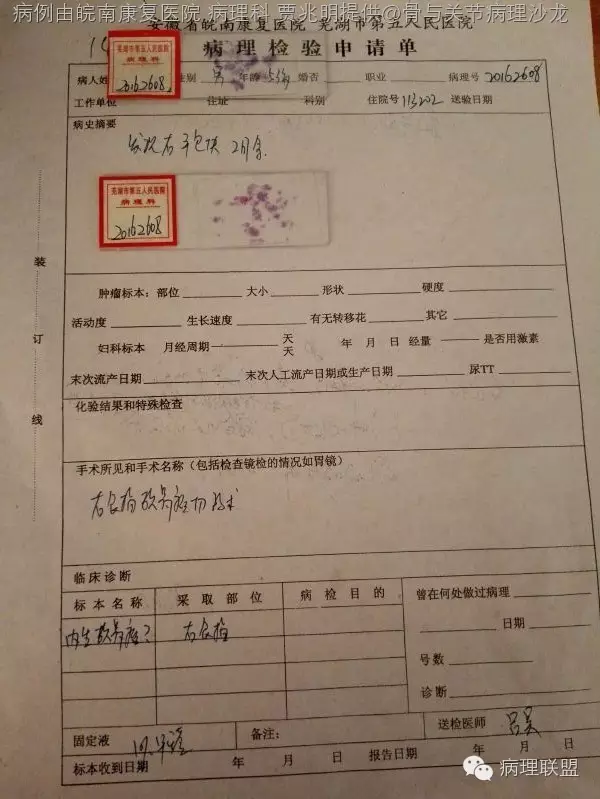 病例由皖南康复医院 病理科 贾兆明提供@骨与关节病理沙龙
安徽省皖南康复医院 芜湖市第五人民医院
病理检验申请单
芜湖市第五人民医院
病理科
20162608
病人姓 性别 男 年龄 婚否 职业 病理号 20162608
工作单位 住址 科别 住院号 113202 送验日期
病史摘要
发现右手包块 2月余
芜湖市第五人民医院
病理科
20162608
装
订
线
肿瘤标本:部位 大小 形状 硬度
活动度 生长速度 有无转移花 其它
妇科标本 月经周期 天 天 年 月 日 经量 是否用激素
末次流产日期 末次人工流产日期或生产日期 尿TT
化验结果和特殊检查
手术所见和手术名称(包括检查镜检的情况如胃镜)
右食指软骨瘤切除术
临床诊断
标本名称 采取部位 病检目的 曾在何处做过病理
内生软骨瘤? 右食指 日期
号数
诊断
固定液 备注: 送检医师
标本收到日期 年 月 日 报告日期 年 月 日
病理联盟